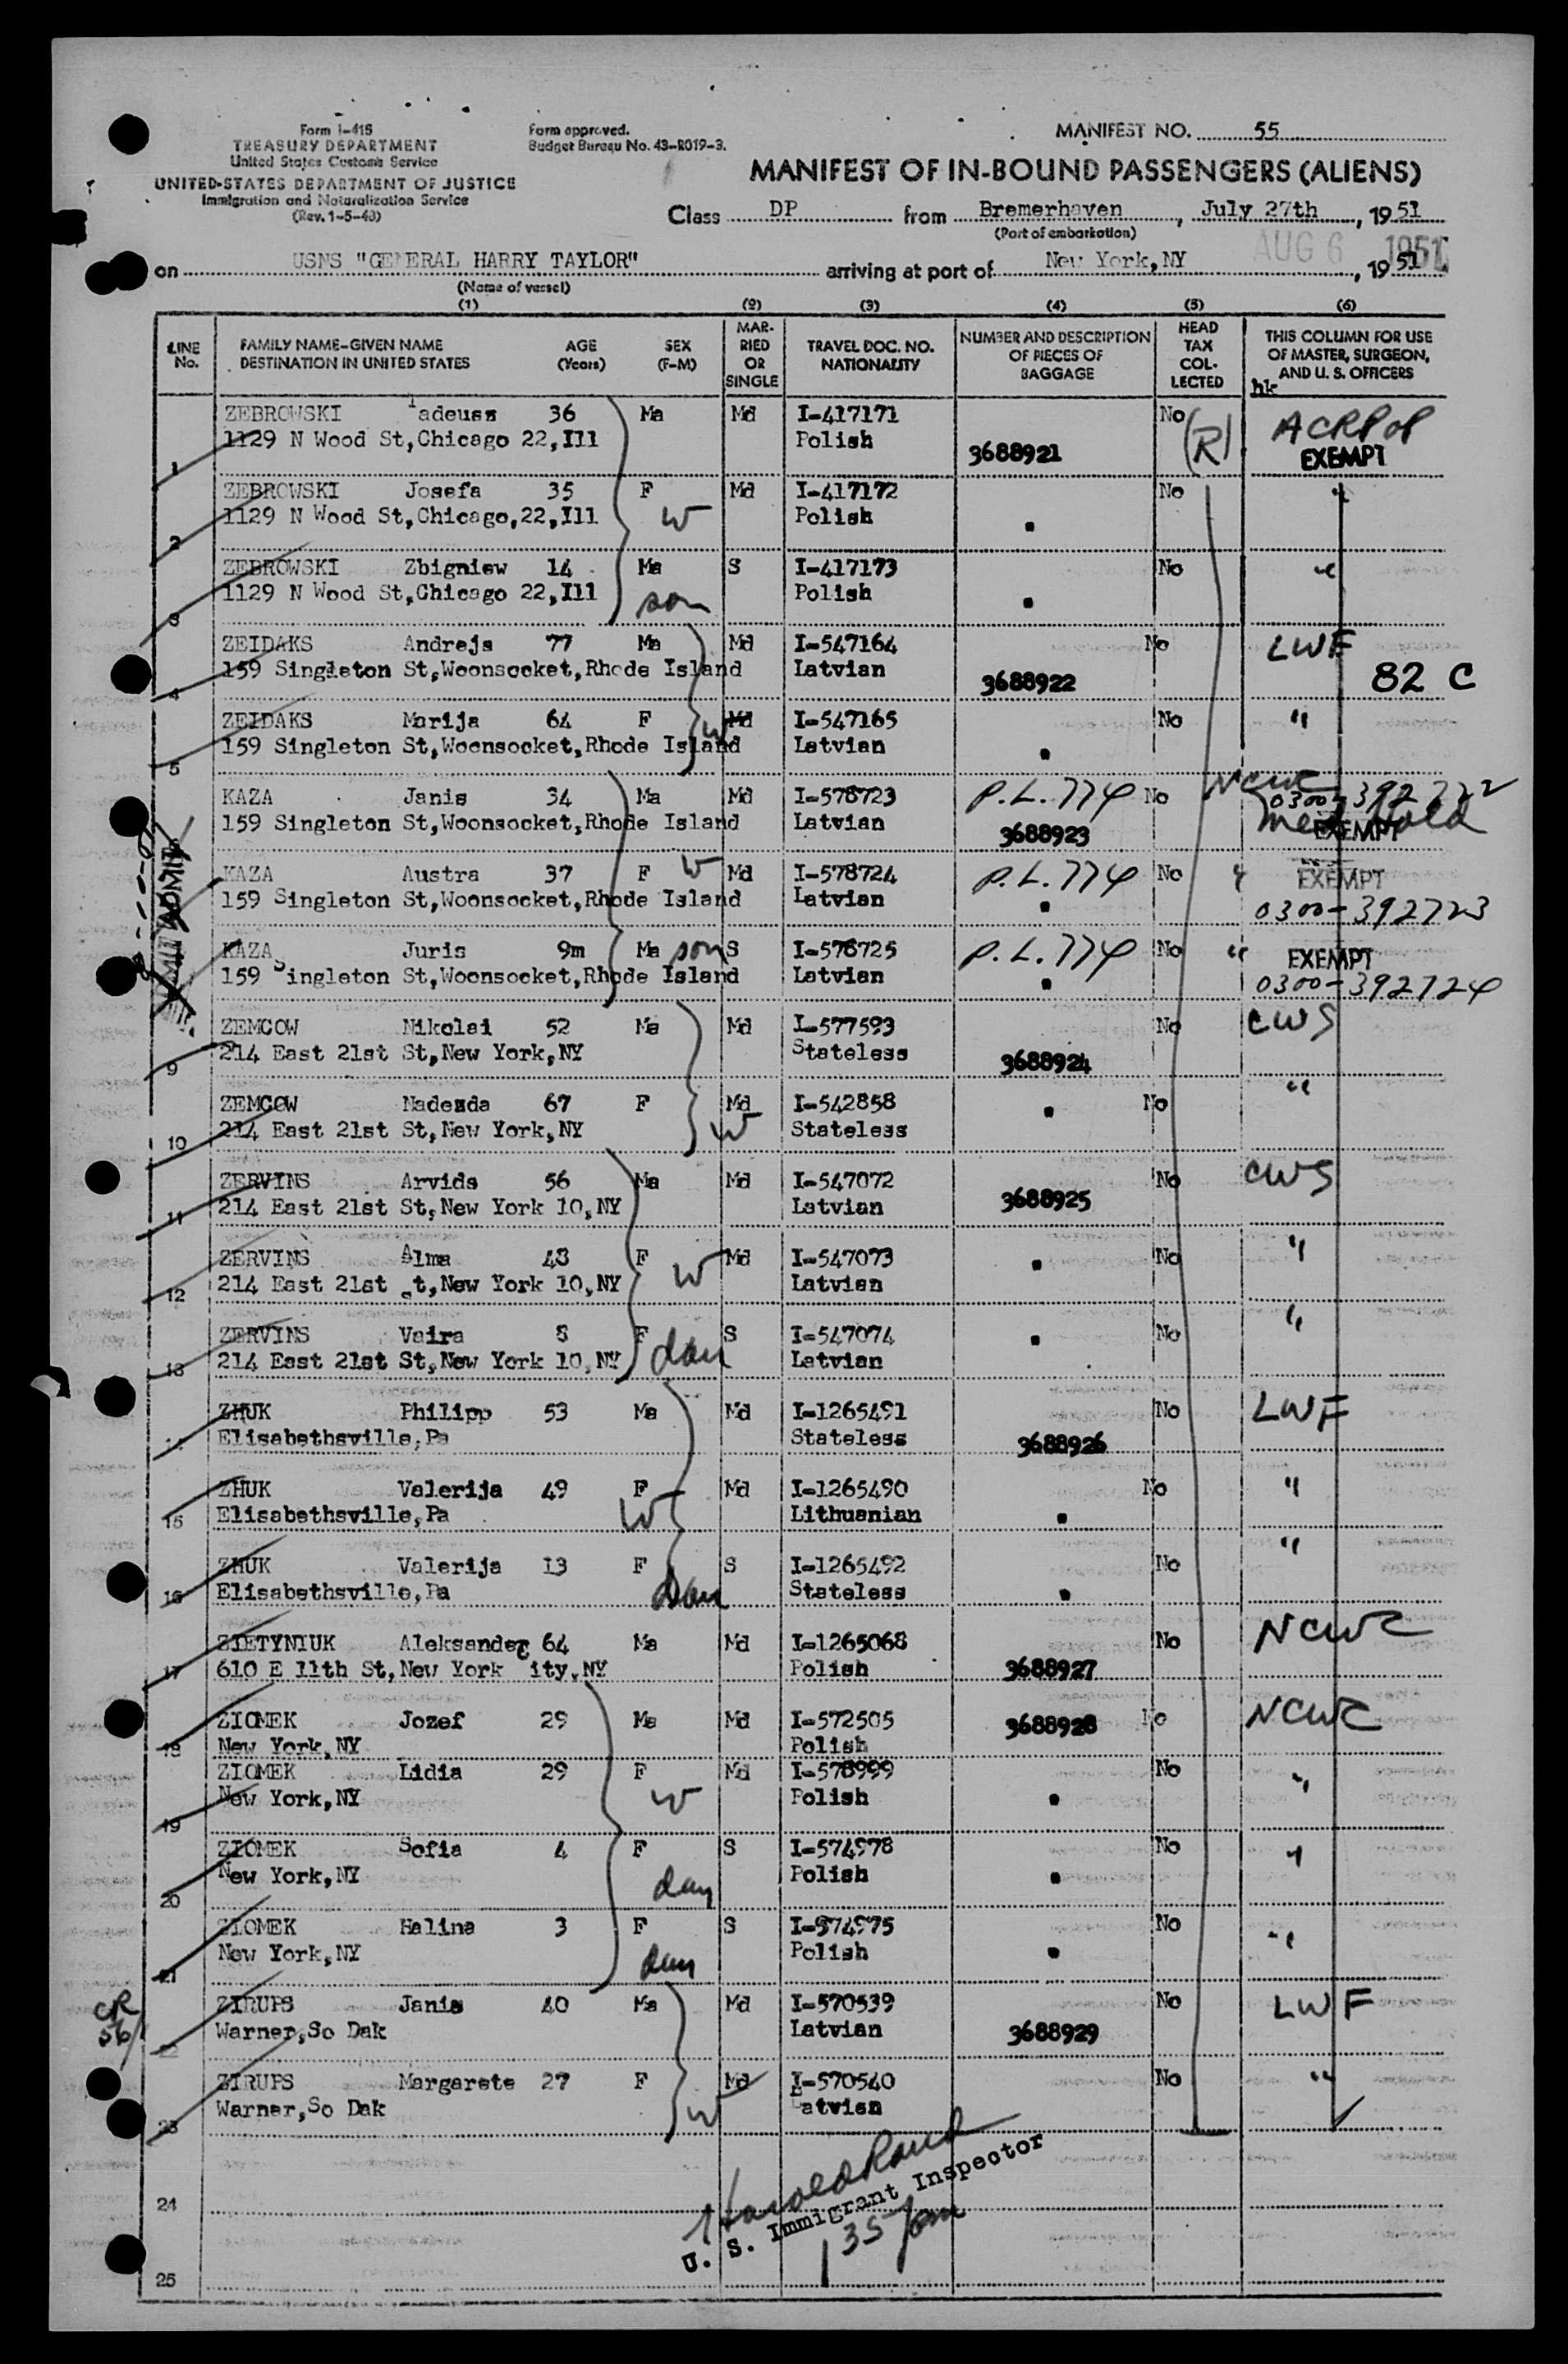 Form I-415
TREASURY DEPARTMENT
United States Customs Service
UNITED STATES DEPARTMENT OF JUSTICE
Immigration and Naturalization Service
(Rev. 1-5-43)
Form approved.
Budget Bureau No. 43-R019-3.
MANIFEST NO. 55
MANIFEST OF IN-BOUND PASSENGERS (ALIENS)
Class DP from Bremerhaven, July 27th, 1951
(Port of embarkation)
AUG 6 1951
on USNS "GENERAL HARRY TAYLOR" arriving at port of New York, NY, 1951
(Name of vessel)
(1) (2) (3) (4) (5) (6)
LINE No. FAMILY NAME-GIVEN NAME DESTINATION IN UNITED STATES AGE (Years) SEX (F-M) MARRIED OR SINGLE TRAVEL DOC. NO. NATIONALITY NUMBER AND DESCRIPTION OF PIECES OF BAGGAGE HEAD TAX COLLECTED THIS COLUMN FOR USE OF MASTER, SURGEON, AND U. S. OFFICERS
hk
1 ZEBROWSKI Tadeuss 36 Ma Md I-417171 No (R)
1129 N Wood St,Chicago 22,Ill Polish 3688921 EXEMPT
2 ZEBROWSKI Josefa 35 F Md I-417172 No "
1129 N Wood St,Chicago,22,Ill W Polish "
3 ZEBROWSKI Zbigniew 14 Ma S I-417173 No "
1129 N Wood St,Chicago 22,Ill son Polish "
4 ZEIDAKS Andrejs 77 Ma Md I-547164 No LWF
159 Singleton St,Woonsocket,Rhode Island Latvian 3688922 82 C
5 ZEIDAKS Marija 64 F W Md I-547165 No "
159 Singleton St,Woonsocket,Rhode Island Latvian "
KAZA Janis 34 Ma Md I-578723 P.L. 774 No NCWC 0300-392722
159 Singleton St,Woonsocket,Rhode Island Latvian 3688923 Med Hold EXEMPT
KAZA Austra 37 F W Md I-578724 P.L. 774 No " EXEMPT
159 Singleton St,Woonsocket,Rhode Island Latvian " 0300-392723
KAZA Juris 9m Ma son S I-578725 P.L. 774 No " EXEMPT
159 Singleton St,Woonsocket,Rhode Island Latvian " 0300-392724
9 ZEMCOW Nikolai 52 Ma Md I-577593 No CWS
214 East 21st St,New York,NY Stateless 3688924
10 ZEMCOW Nadezda 67 F Md I-542858 " No "
214 East 21st St,New York,NY W Stateless
11 ZERVINS Arvids 56 Ma Md I-547072 No CWS
214 East 21st St,New York 10,NY Latvian 3688925
12 ZERVINS Alma 48 F W Md I-547073 " No "
214 East 21st St,New York 10,NY Latvian
13 ZERVINS Vaira 8 F S I-547074 " No "
214 East 21st St,New York 10,NY dau Latvian
14 ZHUK Philipp 53 Ma Md I-1265491 No LWF
Elisabethsville,Pa Stateless 3688926
15 ZHUK Valerija 49 F Md I-1265490 No "
Elisabethsville,Pa W Lithuanian "
16 ZHUK Valerija 13 F S I-1265492 No "
Elisabethsville,Pa Dau Stateless "
17 ZIETYNIUK Aleksander 64 Ma Md I-1265068 No NCWC
610 E 11th St,New York City,NY Polish 3688927
18 ZIOMEK Jozef 29 Ma Md I-572505 3688928 No NCWC
New York,NY Polish
19 ZIOMEK Lidia 29 F Md I-578999 No "
New York,NY W Polish "
20 ZIOMEK Sofia 4 F S I-574978 No "
New York,NY dau Polish "
21 ZIOMEK Halina 3 F S I-574975 No "
New York,NY dau Polish "
CR 56/
22 ZIRUPS Janis 40 Ma Md I-570539 No LWF
Warner,So Dak Latvian 3688929
23 ZIRUPS Margarete 27 F Md I-570540 No "
Warner,So Dak W Latvian
24
25
U. S. Immigrant Inspector